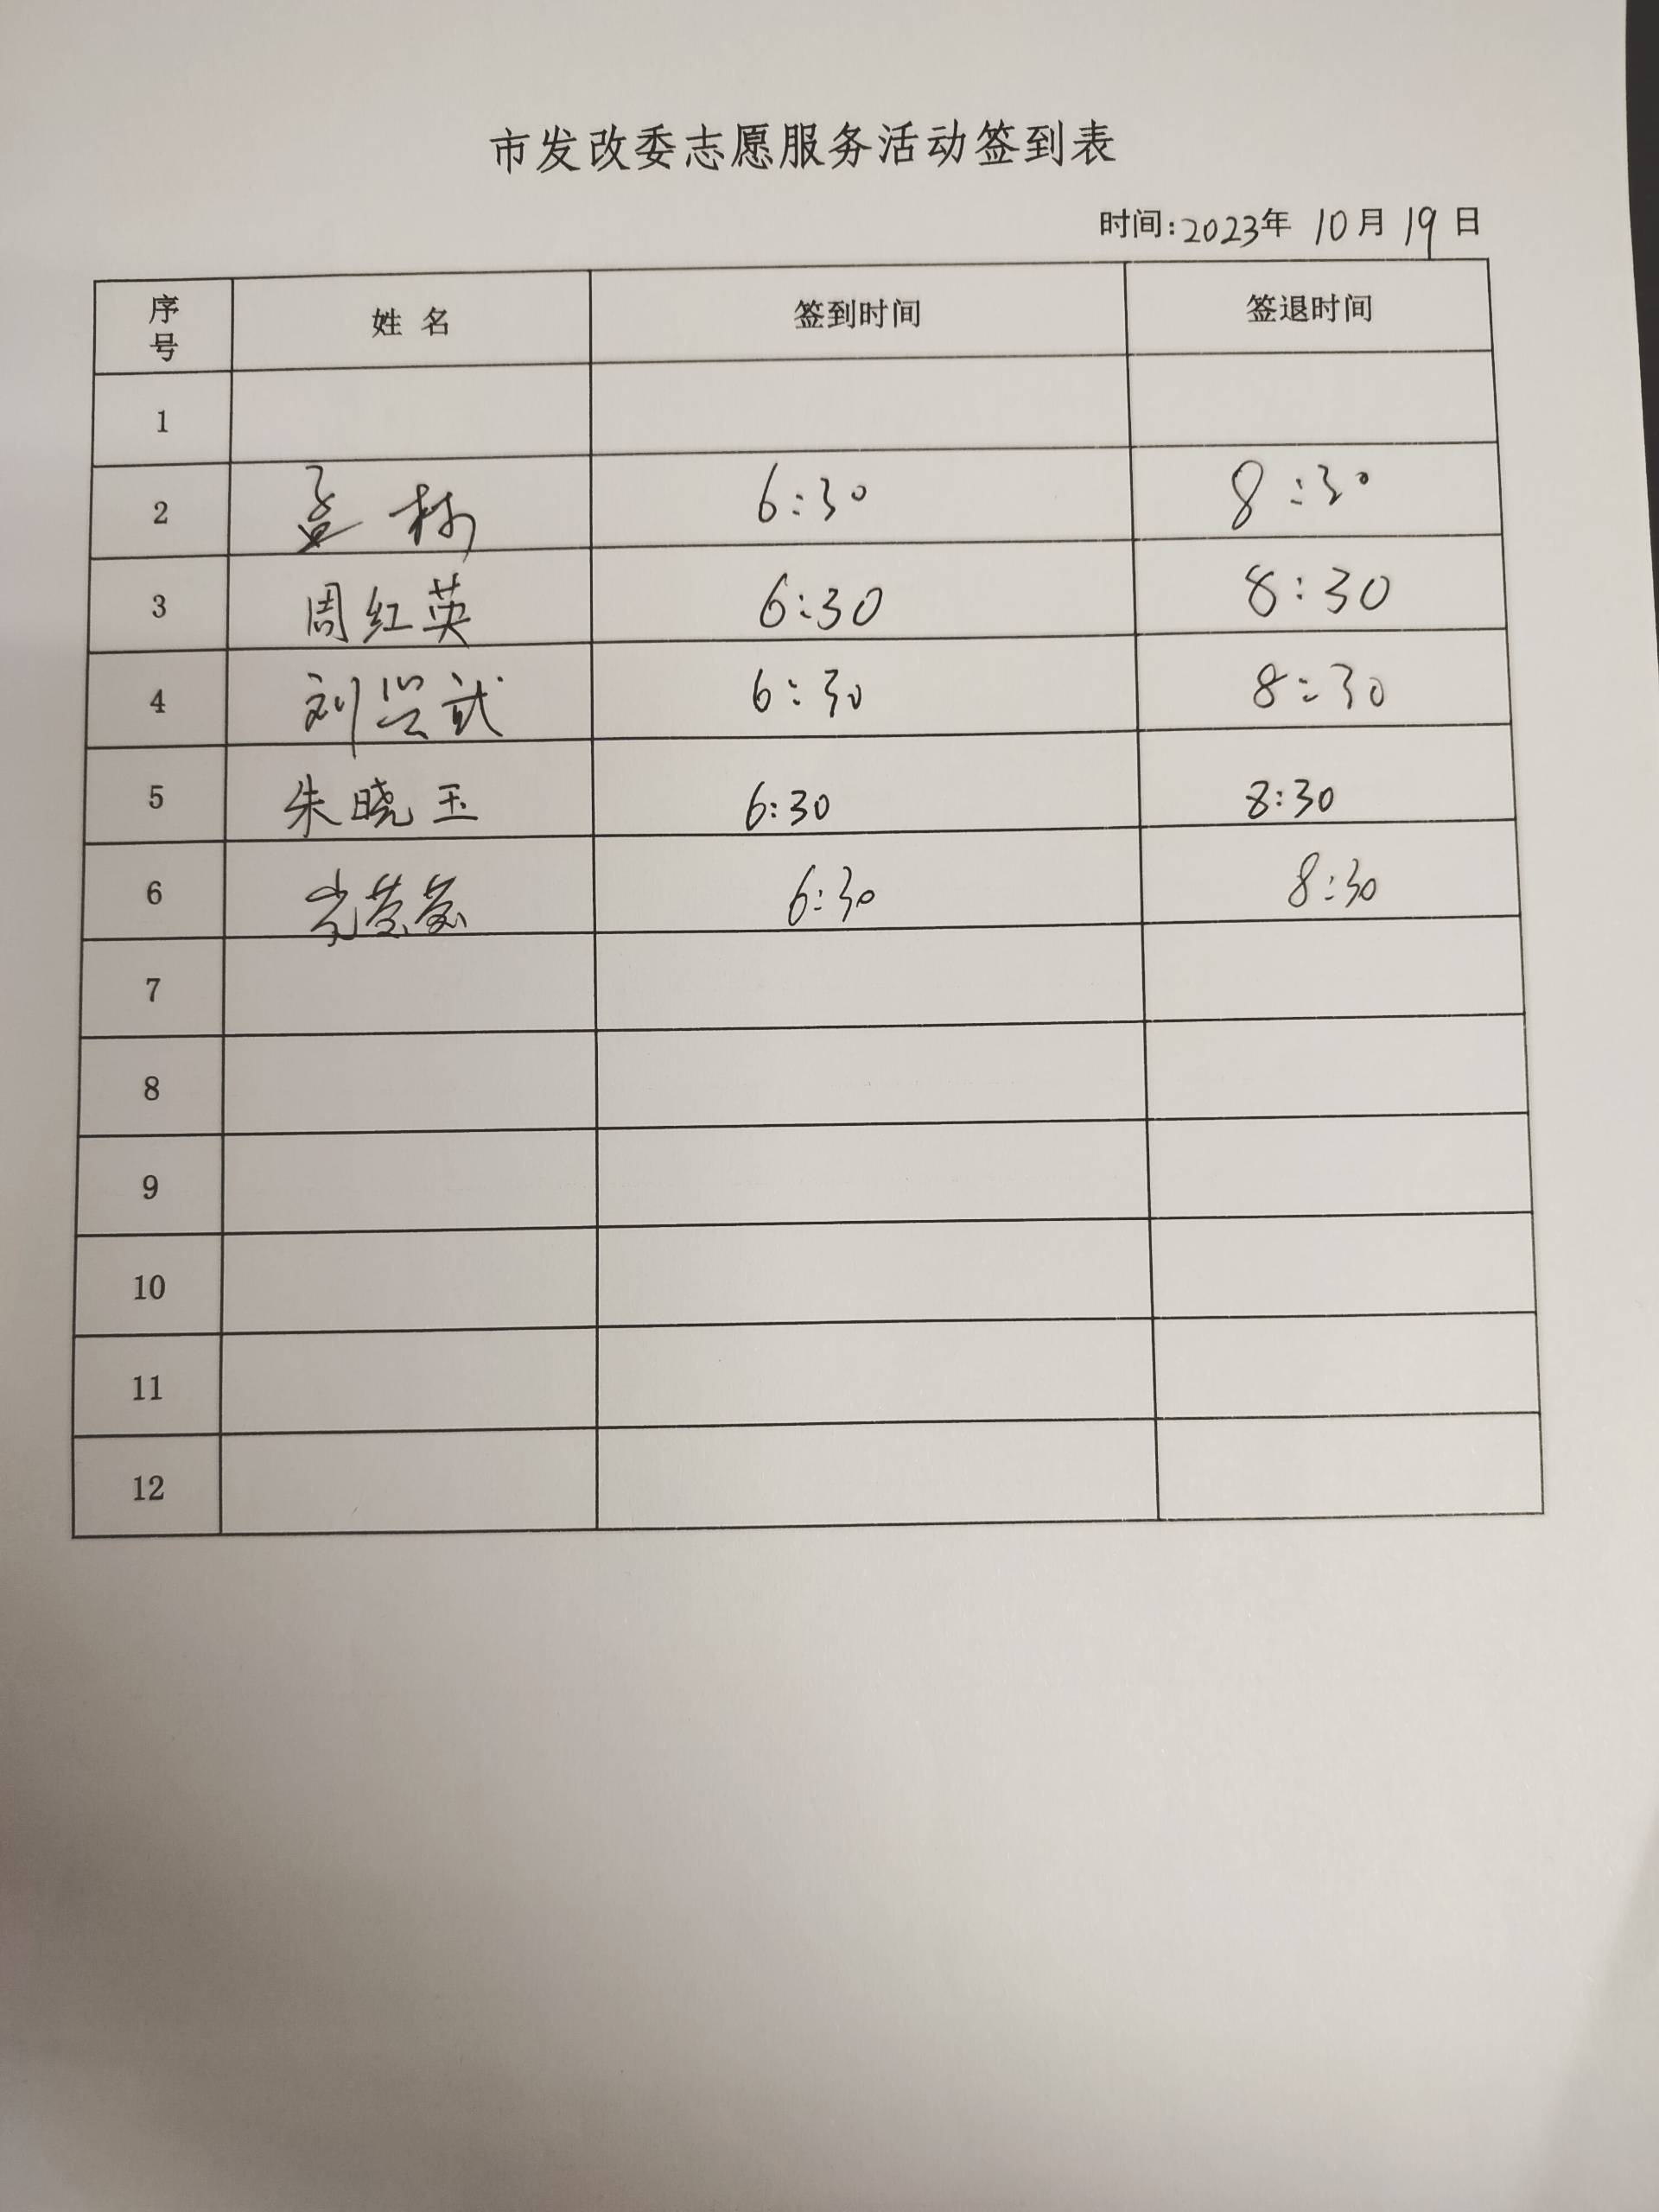 市发改委志愿服务活动签到表
时间:2023年 10月 19日
序号 姓 名 签到时间 签退时间
1
2 孟 6:30 8:30
3 周红英 6:30 8:30
4 刘兴武 6:30 8:30
5 朱晓玉 6:30 8:30
6 6:30 8:30
7
8
9
10
11
12